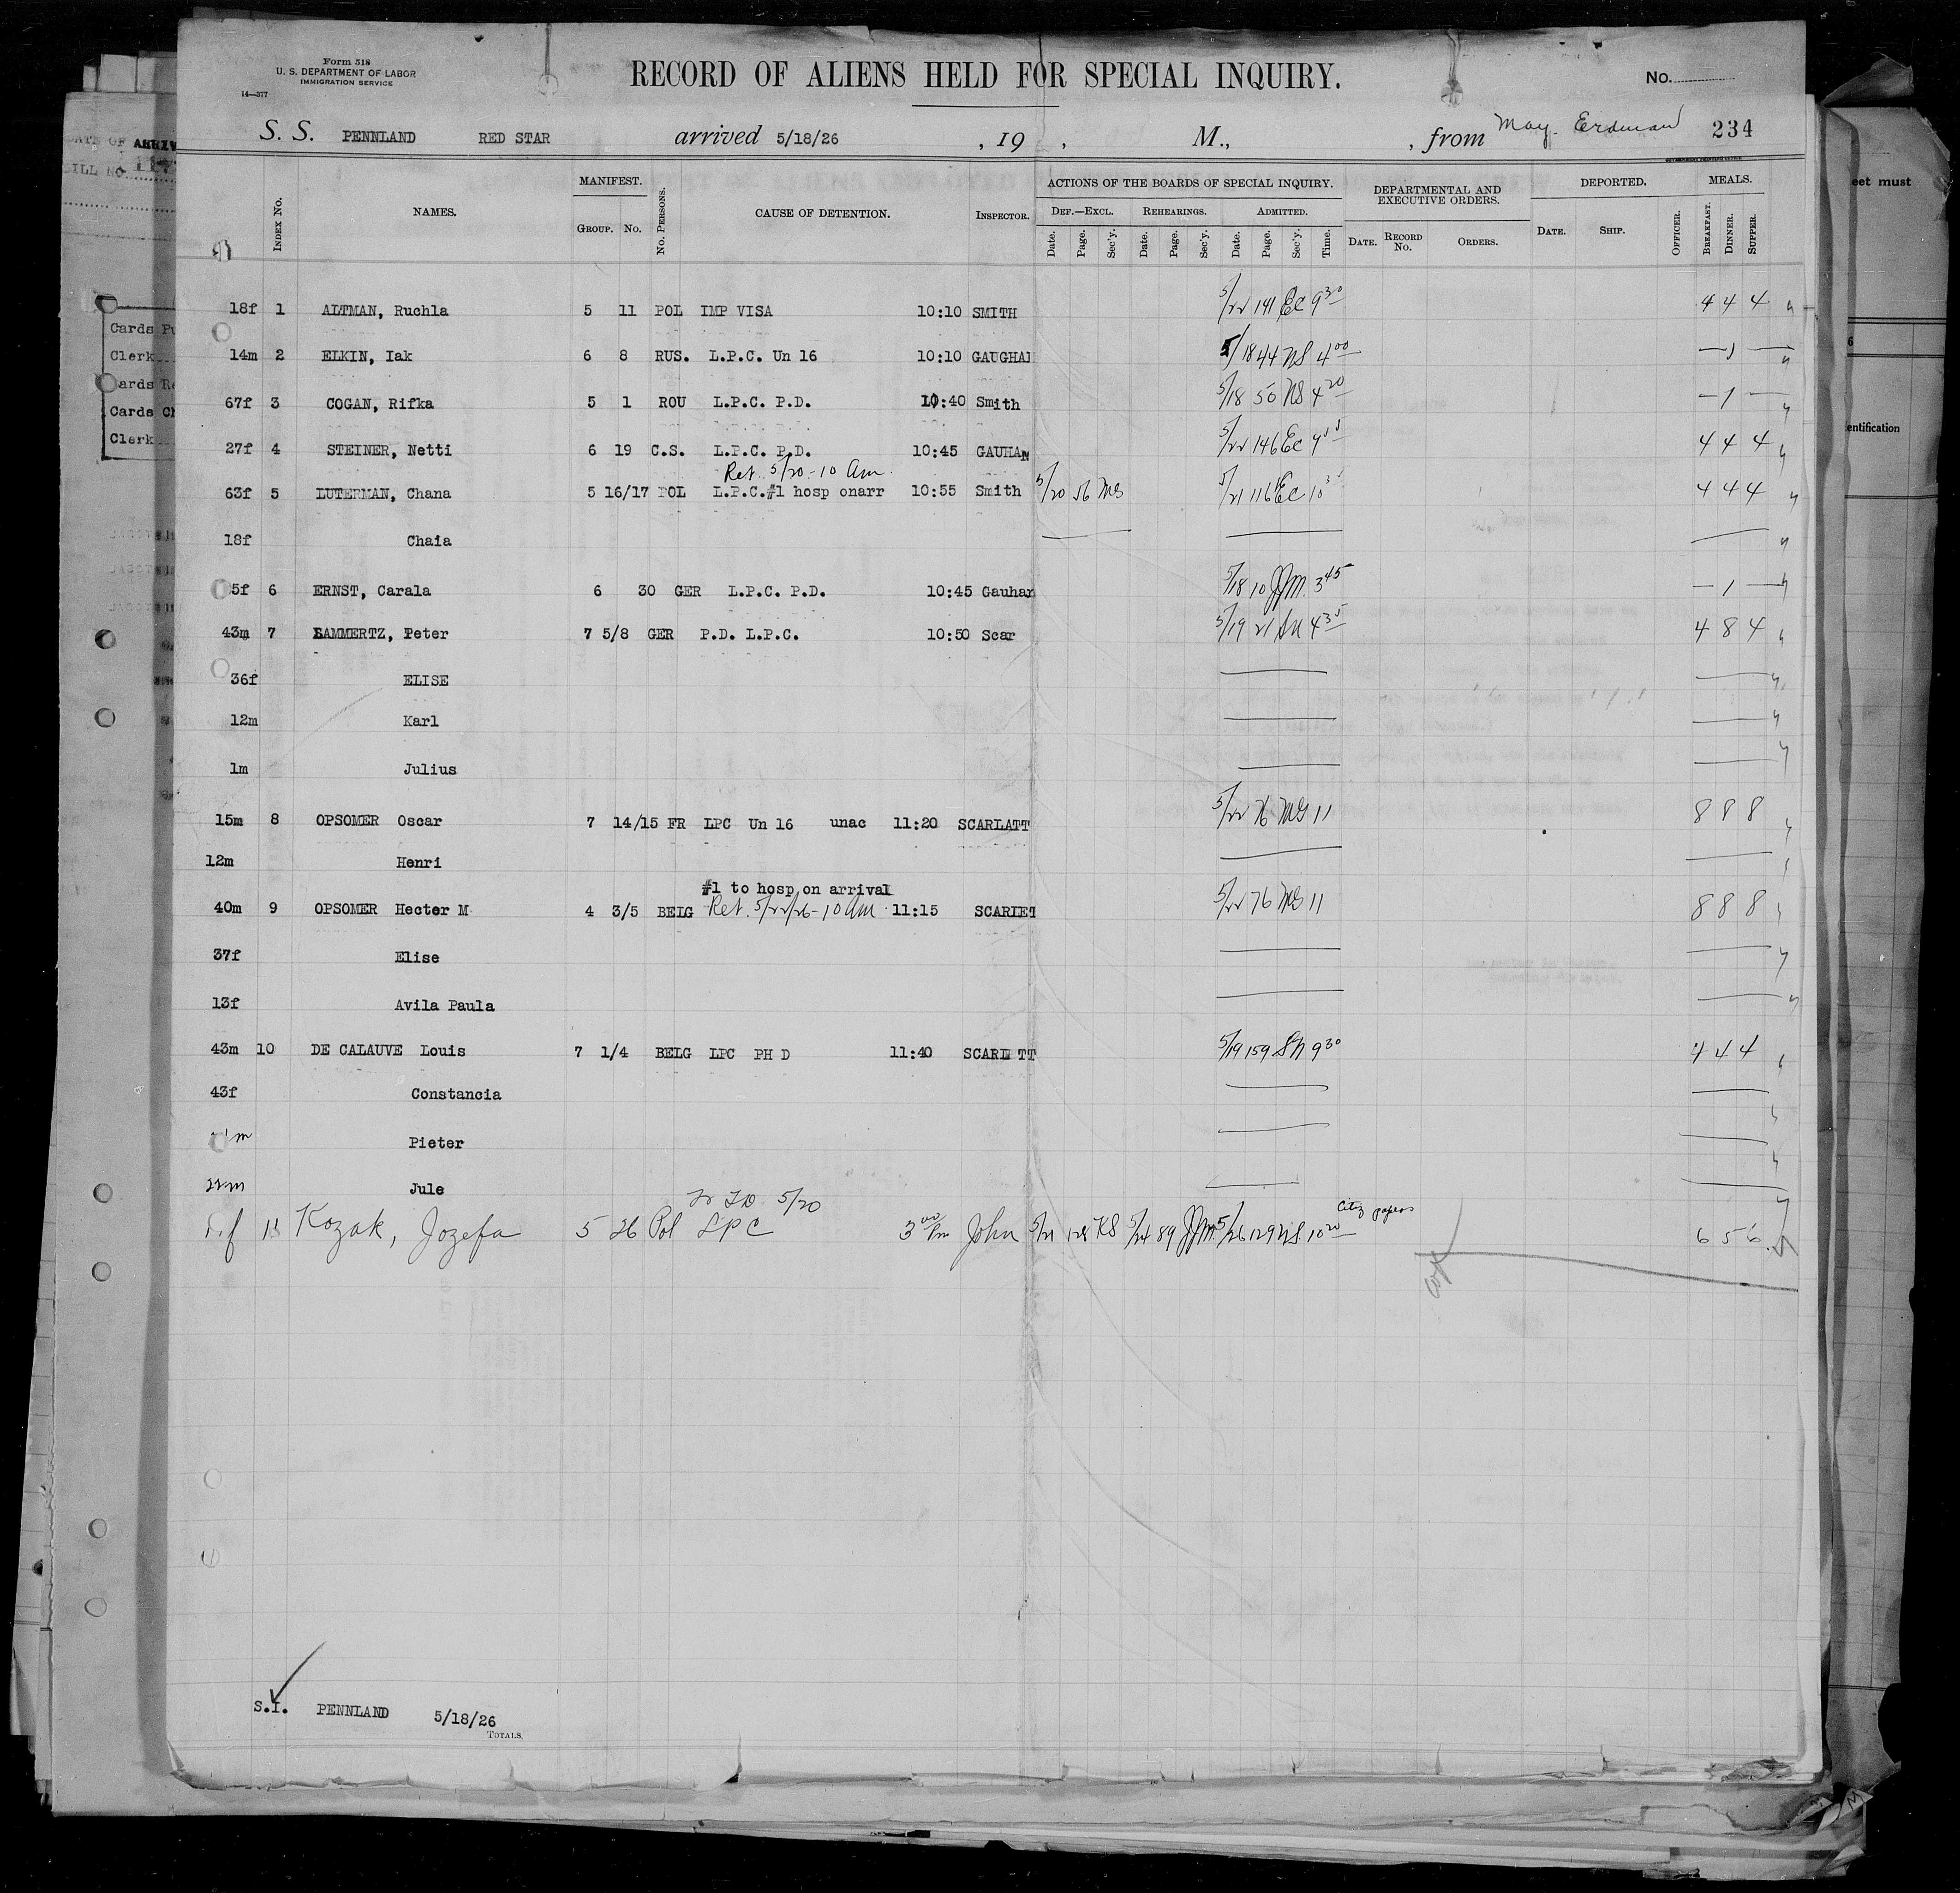 Form 518
U. S. DEPARTMENT OF LABOR
IMMIGRATION SERVICE
14—377
RECORD OF ALIENS HELD FOR SPECIAL INQUIRY.
No.
S. S. PENNLAND RED STAR arrived 5/18/26 , 19 , M., , from May. Erdman 234
INDEX No. NAMES. MANIFEST. GROUP. No. No. PERSONS. CAUSE OF DETENTION. INSPECTOR.
ACTIONS OF THE BOARDS OF SPECIAL INQUIRY. DEF.—EXCL. REHEARINGS. ADMITTED.
Date. Page. Sec'y. Date. Page. Sec'y. Date. Page. Sec'y. Time.
DEPARTMENTAL AND EXECUTIVE ORDERS. DATE. RECORD No. ORDERS.
DEPORTED. DATE. SHIP. OFFICER.
MEALS. BREAKFAST. DINNER. SUPPER.
18f 1 ALTMAN, Ruchla 5 11 POL IMP VISA 10:10 SMITH 5/22 141 EC 9 30 4 4 4
14m 2 ELKIN, Iak 6 8 RUS. L.P.C. Un 16 10:10 GAUGHAN 5/18 44 NS 4 00 — 1 —
67f 3 COGAN, Rifka 5 1 ROU L.P.C. P.D. 10:40 Smith 5/18 50 NS 4 20 — 1 —
27f 4 STEINER, Netti 6 19 C.S. L.P.C. P.D. 10:45 GAUHAN 5/22 146 EC 4 4 4
Ret. 5/20 - 10 Am.
63f 5 LUTERMAN, Chana 5 16/17 POL L.P.C.#1 hosp onarr 10:55 Smith 5/20 56 MS 5/21 116 EC 4 4 4
18f Chaia
5f 6 ERNST, Carala 6 30 GER L.P.C. P.D. 10:45 Gauhan 5/18 10 JJM 3 45 — 1 —
43m 7 LAMMERTZ, Peter 7 5/8 GER P.D. L.P.C. 10:50 Scar 5/19 21 SN 4 35 4 8 4
36f ELISE
12m Karl
1m Julius
15m 8 OPSOMER Oscar 7 14/15 FR LPC Un 16 unac 11:20 SCARLATT 5/22 76 MS 11 8 8 8
12m Henri
#1 to hosp on arrival
40m 9 OPSOMER Hector M 4 3/5 BELG Ret. 5/22/26 - 10 Am 11:15 SCARLET 5/22 76 MS 11 8 8 8
37f Elise
13f Avila Paula
43m 10 DE CALAUVE Louis 7 1/4 BELG LPC PH D 11:40 SCARL TT 5/19 159 SN 9 30 4 4 4
43f Constancia
m Pieter
m Jule
5/20
f 11 Kozak, Jozefa 5 26 Pol LPC 3 00 Pm John 5/21 128 KS 5/24 89 JJM 5/26 129 NS 10 20 Citz papers 6 5 6
S.I. PENNLAND 5/18/26
TOTALS.
DATE OF ARRIV
BILL NO 117
Cards Pu
Clerk
Cards Re
Cards Ch
Clerk
eet must
6
entification